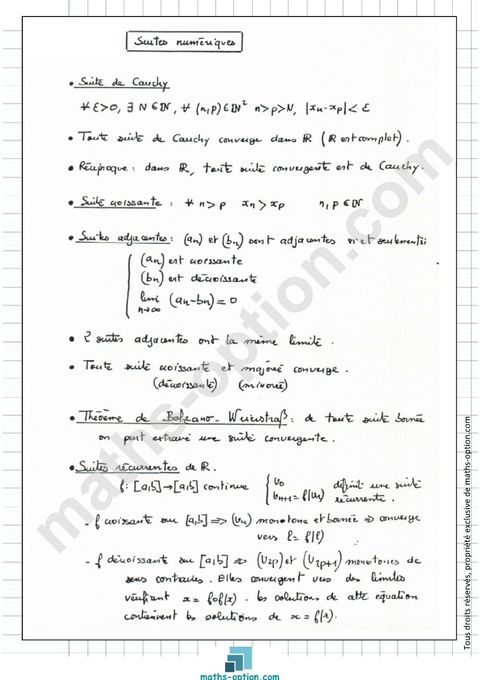 Suites numériques
• Suite de Cauchy
∀ε>0, ∃N∈ℕ, ∀(n,p)∈ℕ² n>p>N, |xn-xp|<ε
• Toute suite de Cauchy converge dans ℝ (ℝ est complet).
• Réciproque : dans ℝ, toute suite convergente est de Cauchy.
• Suite croissante : ∀ n>p xn>xp n,p∈ℕ
• Suites adjacentes : (an) et (bn) sont adjacentes si et seulement si
(an) est croissante
(bn) est décroissante
lim (an-bn)=0
n→∞
• 2 suites adjacentes ont la même limite.
• Toute suite croissante et majorée converge.
(décroissante) (minorée)
• Théorème de Bolzano-Weierstraß : de toute suite bornée
on peut extraire une suite convergente.
• Suites récurrentes de ℝ.
f: [a,b]→[a,b] continue { u0 définit une suite
un+1 = f(un) récurrente.
- f croissante sur [a,b] ⟹ (un) monotone et bornée ⟹ converge
vers l=f(l)
- f décroissante sur [a,b] ⟹ (u2p) et (u2p+1) monotones de
sens contraires. Elles convergent vers des limites
vérifiant x = fof(x). les solutions de cette équation
contiennent les solutions de x = f(x).
maths-option.com
Tous droits réservés, propriété exclusive de maths-option.com
maths-option.com